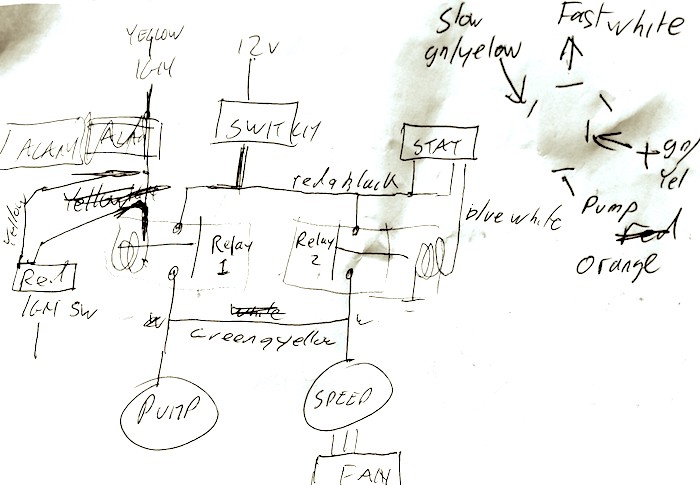 YELLOW
IGN
12v
Slow
gn/yelow
Fast white
ALAM
ALAM
SWITCH
STAT
+ gn/
Yel
red g black
Yellow
blue white
Pump
Orange
Relay
1
Relay
2
Red
IGN SW
white
Green g yellow
PUMP
SPEED
FAN